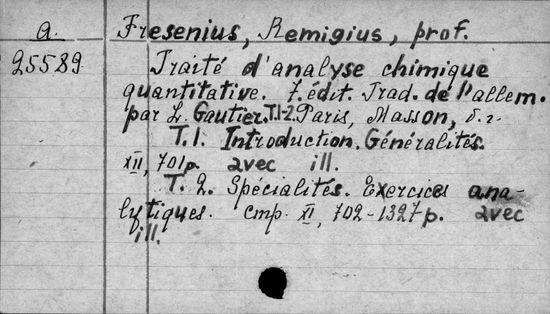 a. Fresenius, Remigius, prof.
25589. Traité d'analyse chimique
quantitative. 7. édit. Trad. de l'allem.
par L. Gautier. T.1-2. Paris, Masson, s.a.
T. 1. Introduction. Généralités.
XII, 701 p. avec ill.
T. 2. Spécialités. Exercices ana-
lytiques. cmp. XI, 702-1327 p. avec
ill.